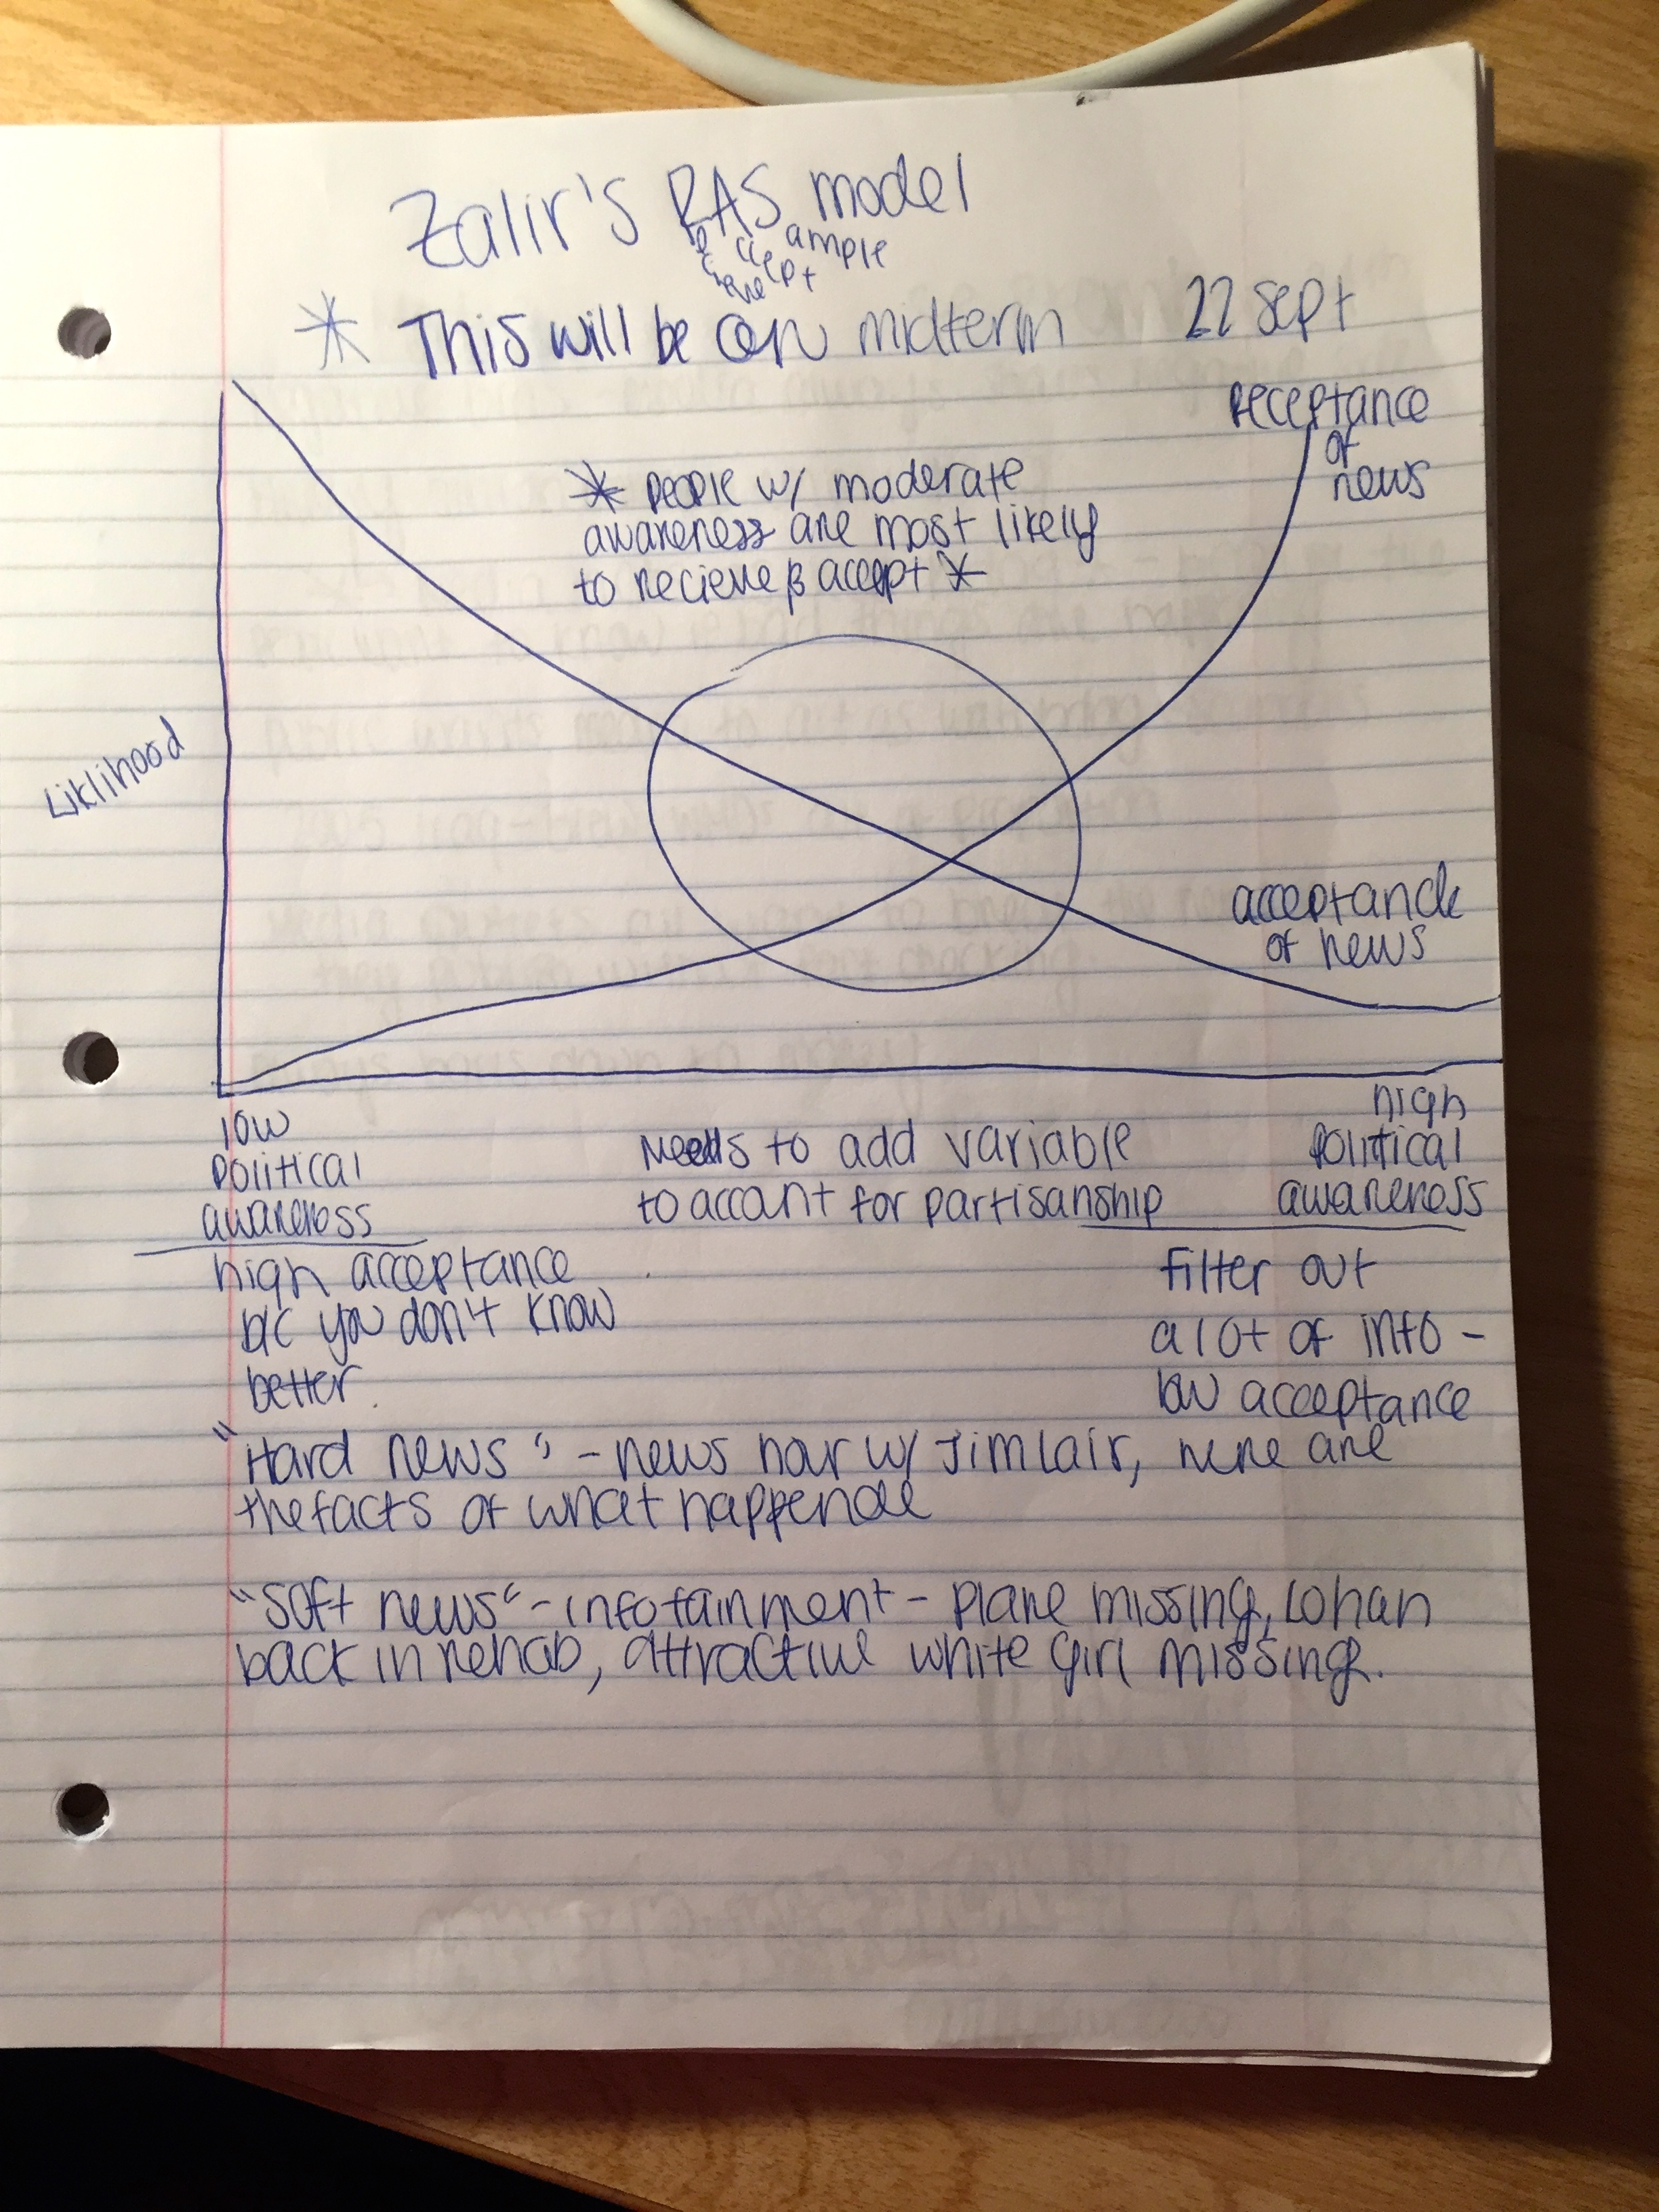 Zalir's RAS model
Recieve Accept Sample
* This will be on midterm 22 sept
receptance
of
news
* people w/ moderate
awareness are most likely
to recieve & accept *
Liklihood
acceptance
of news
low
political
awareness
Needs to add variable
to account for partisanship
high
political
awareness
high acceptance
b/c you don't know
better.
filter out
a lot of info -
low acceptance
"Hard news" - news hour w/ Jim Lair, here are
the facts of what happende
"soft news" - infotainment - plane missing, Lohan
back in rehab, attractive white girl missing.